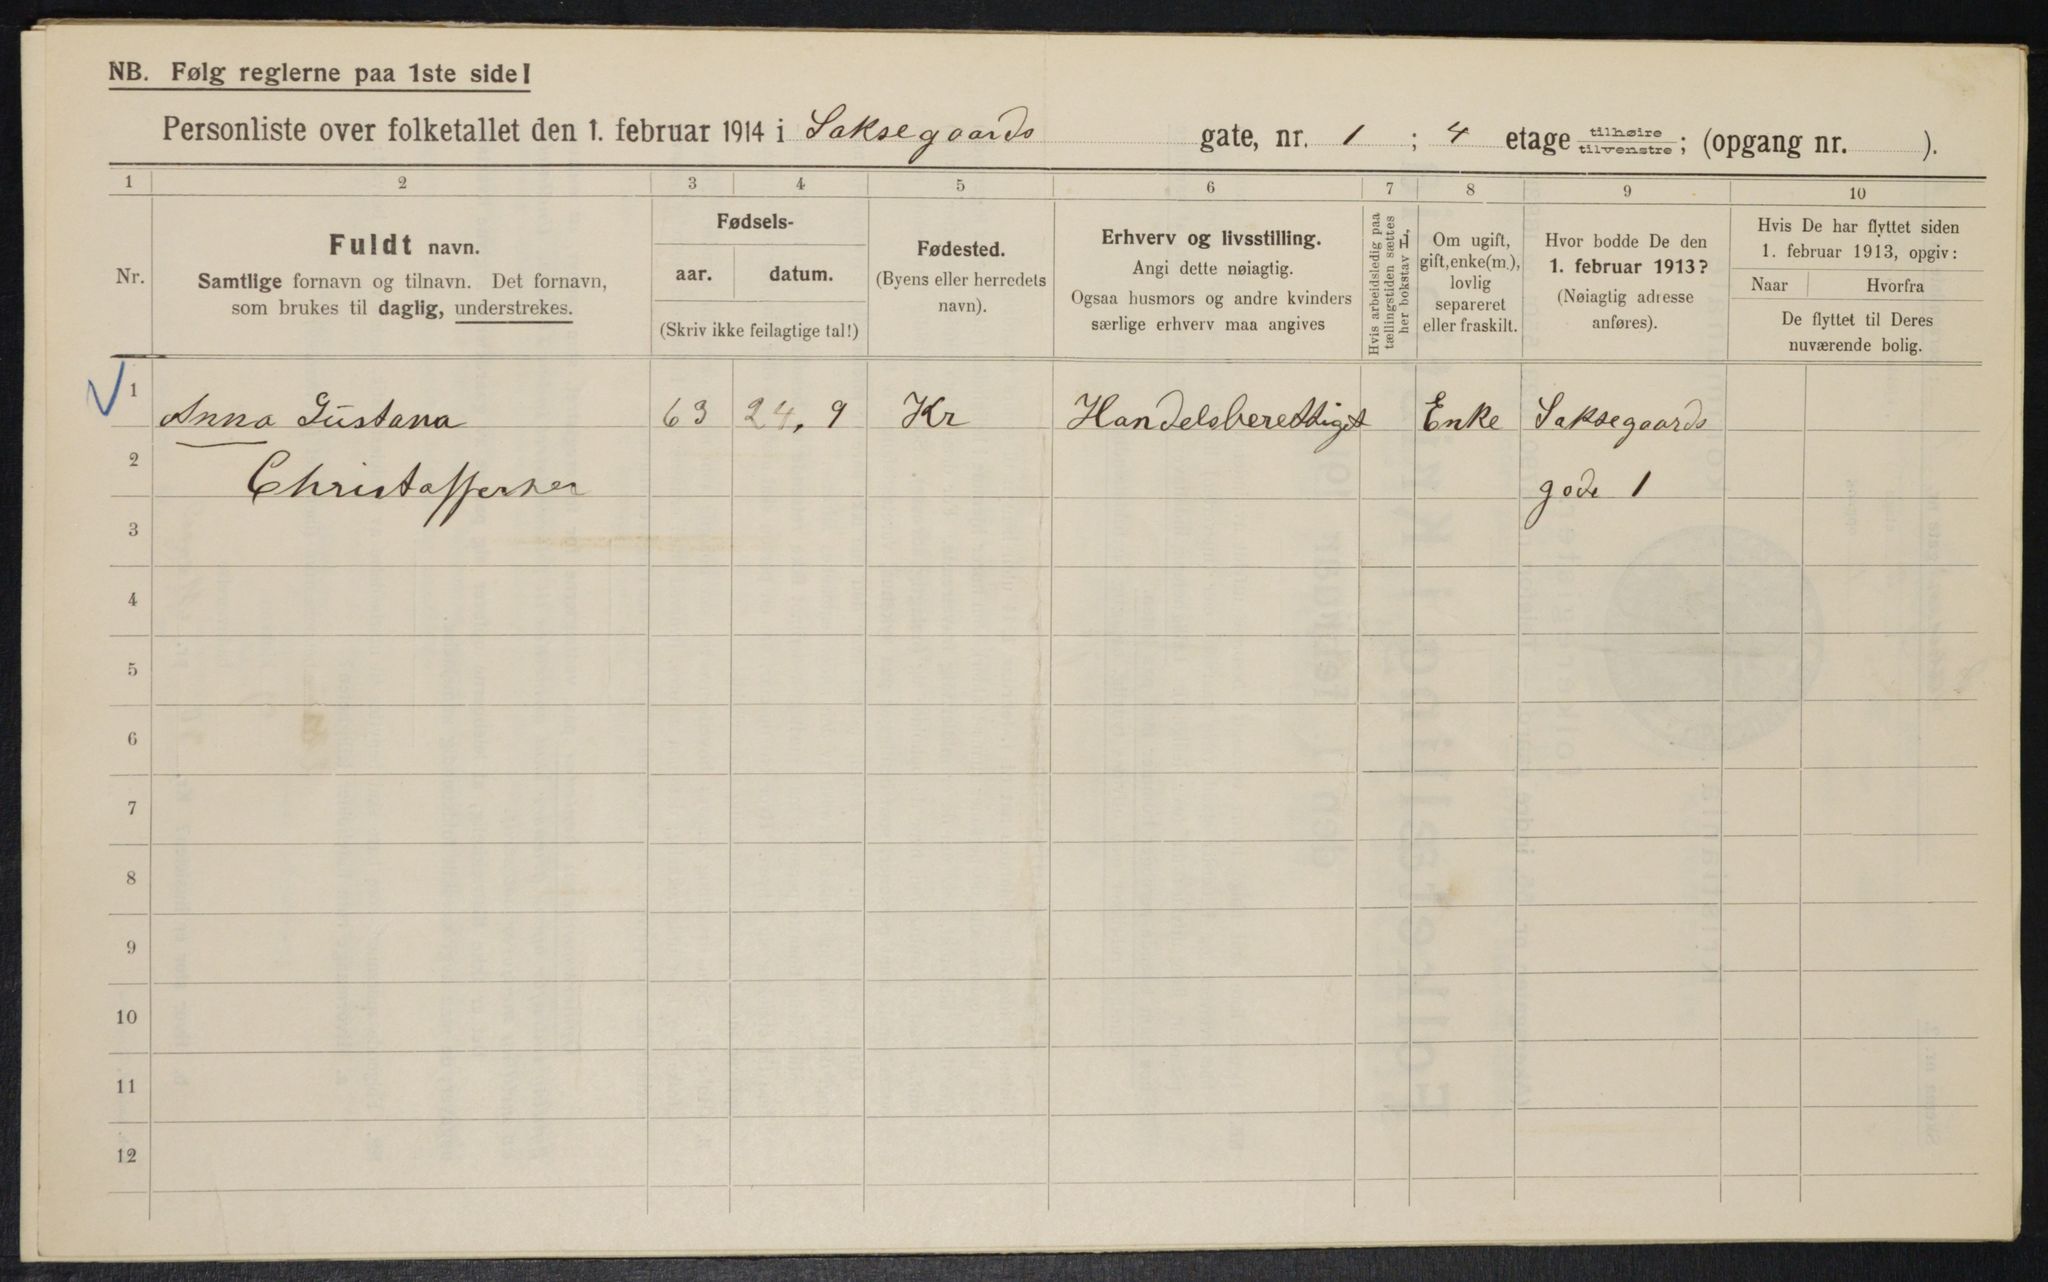 NB. Følg reglerne paa 1ste side!
Personliste over folketallet den 1. februar 1914 i Saksegaards gate, nr. 1 ; 4 etage tilhøire tilvenstre; (opgang nr. ).
1 2 3 4 5 6 7 8 9 10
Nr.
Fuldt navn.
Samtlige fornavn og tilnavn. Det fornavn,
som brukes til daglig, understrekes.
Fødsels-
aar. datum.
(Skriv ikke feilagtige tal!)
Fødested.
(Byens eller herredets
navn).
Erhverv og livsstilling.
Angi dette nøiagtig.
Ogsaa husmors og andre kvinders
særlige erhverv maa angives
Hvis arbeidsledig paa
tællingstiden sættes
her bokstav L,
Om ugift,
gift, enke(m.),
lovlig
separeret
eller fraskilt.
Hvor bodde De den
1. februar 1913?
(Nøiagtig adresse
anføres).
Hvis De har flyttet siden
1. februar 1913, opgiv:
Naar Hvorfra
De flyttet til Deres
nuværende bolig.
1 Anna Gustava 63 24. 9 Kr Handelsberettiget Enke Saksegaards
2 Christoffersen gade 1
3
4
5
6
7
8
9
10
11
12